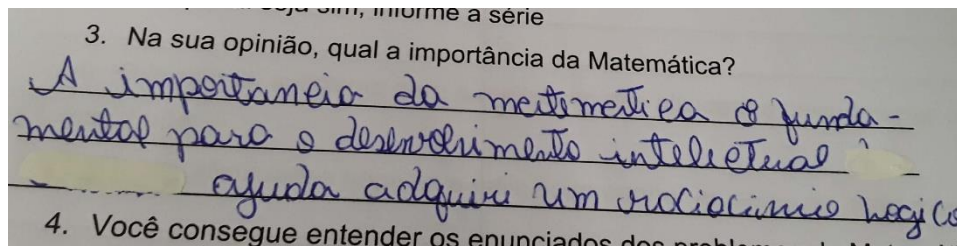 seja sim, informe a série
3. Na sua opinião, qual a importância da Matemática?
A importancia da matematica é funda-
mental para o desenvolvimento intelectual
ajuda adquiri um raciocinio logico
4. Você consegue entender os enunciados dos